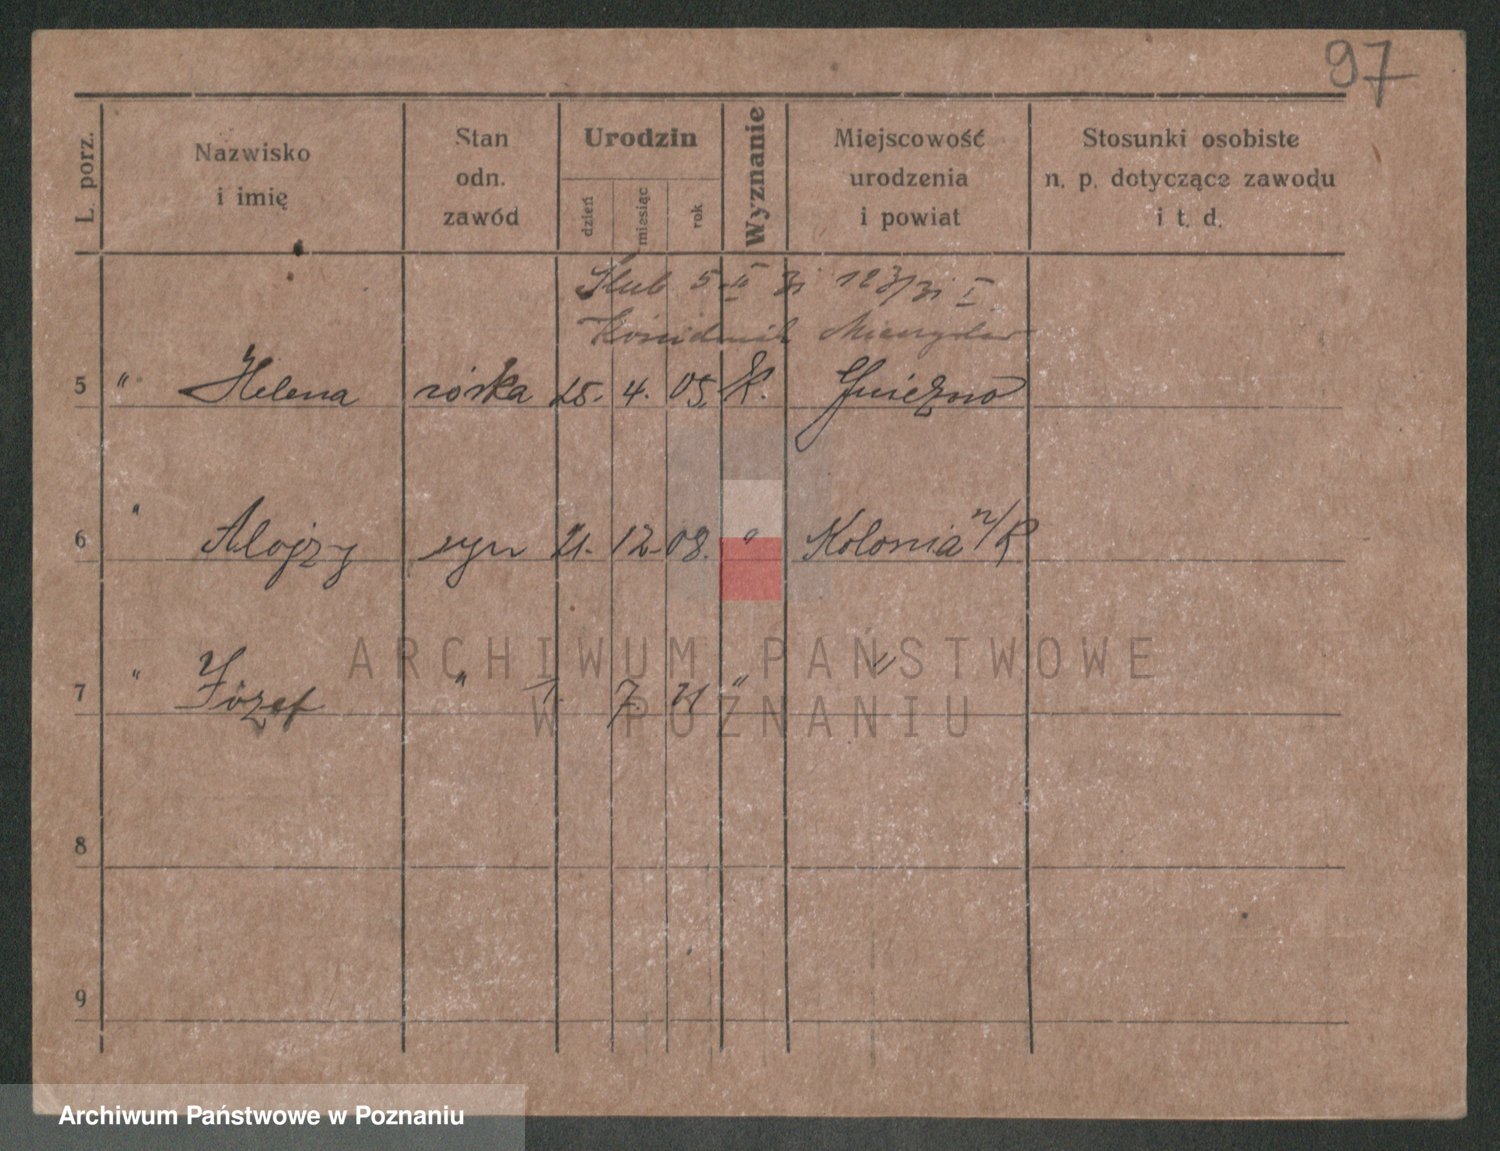 97
L. porz. Nazwisko i imię Stan odn. zawód Urodzin dzień miesiąc rok Wyznanie Miejscowość urodzenia i powiat Stosunki osobiste n. p. dotyczące zawodu i t. d.
Ślub 5 II 31 123/31 I
Mieczysław
5 " Helena córka 25. 4. 05. K. Gniezno
6 " Alojzy syn 21. 12. 08. " Kolonia n/R
7 " Józef " 1. 7. 21 " "
ARCHIWUM PAŃSTWOWE
W POZNANIU
8
9
Archiwum Państwowe w Poznaniu